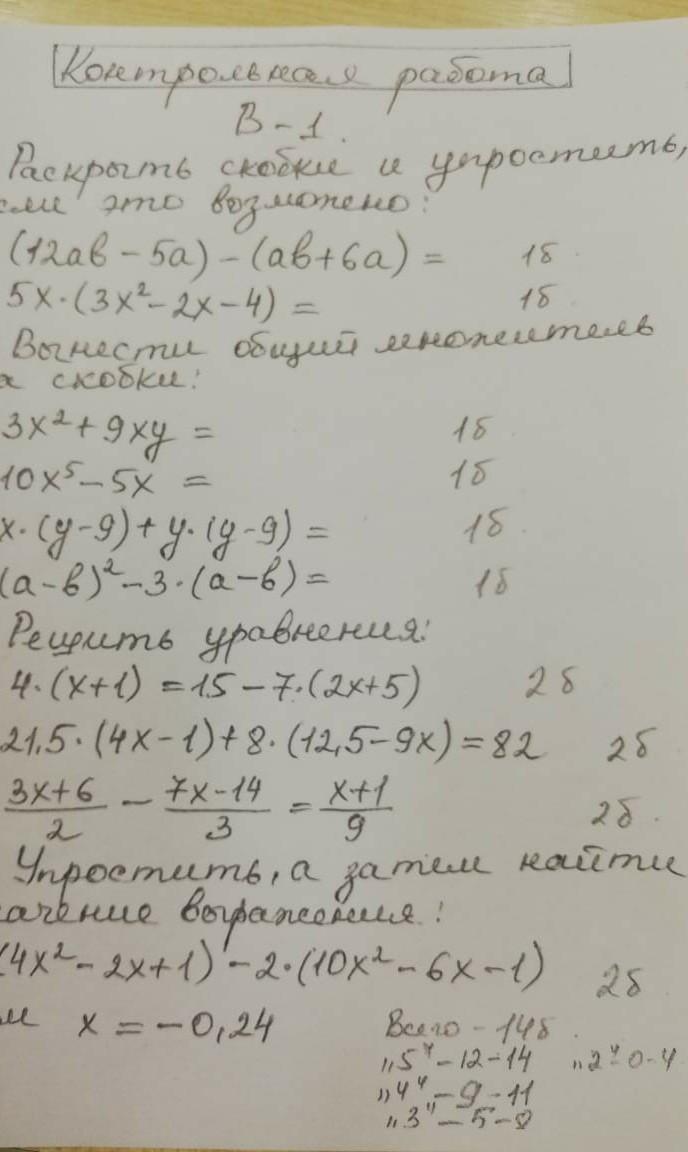 Контрольная работа
В-1.
Раскрыть скобки и упростить,
сли это возможно:
(12ав - 5а) - (ав + 6а) = 1б.
5x·(3x² - 2x - 4) = 1б
Вынести общий множитель
а скобки:
3x² + 9xy = 1б
10x⁵ - 5x = 1б
x·(y-9) + y·(y-9) = 1б
(а-в)² - 3·(а-в) = 1б
Решить уравнения:
4·(x+1) = 15 - 7·(2x+5) 2б
21,5·(4x-1) + 8·(12,5-9x) = 82 2б
(3x+6)/2 - (7x-14)/3 = (x+1)/9 2б.
Упростить, а затем найти
ачение выражения:
(4x² - 2x + 1) - 2·(10x² - 6x - 1) 2б
и x = -0,24 Всего - 14б.
„5" - 12-14 „2" 0-4
„4" - 9-11
„3" - 5-8